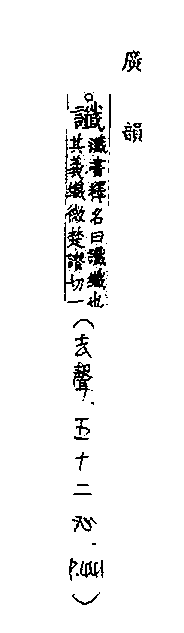 廣韻
○讖
讖書釋名曰讖纖也
其義纖微楚譖切一
(去聲.五十二沁.P.441)